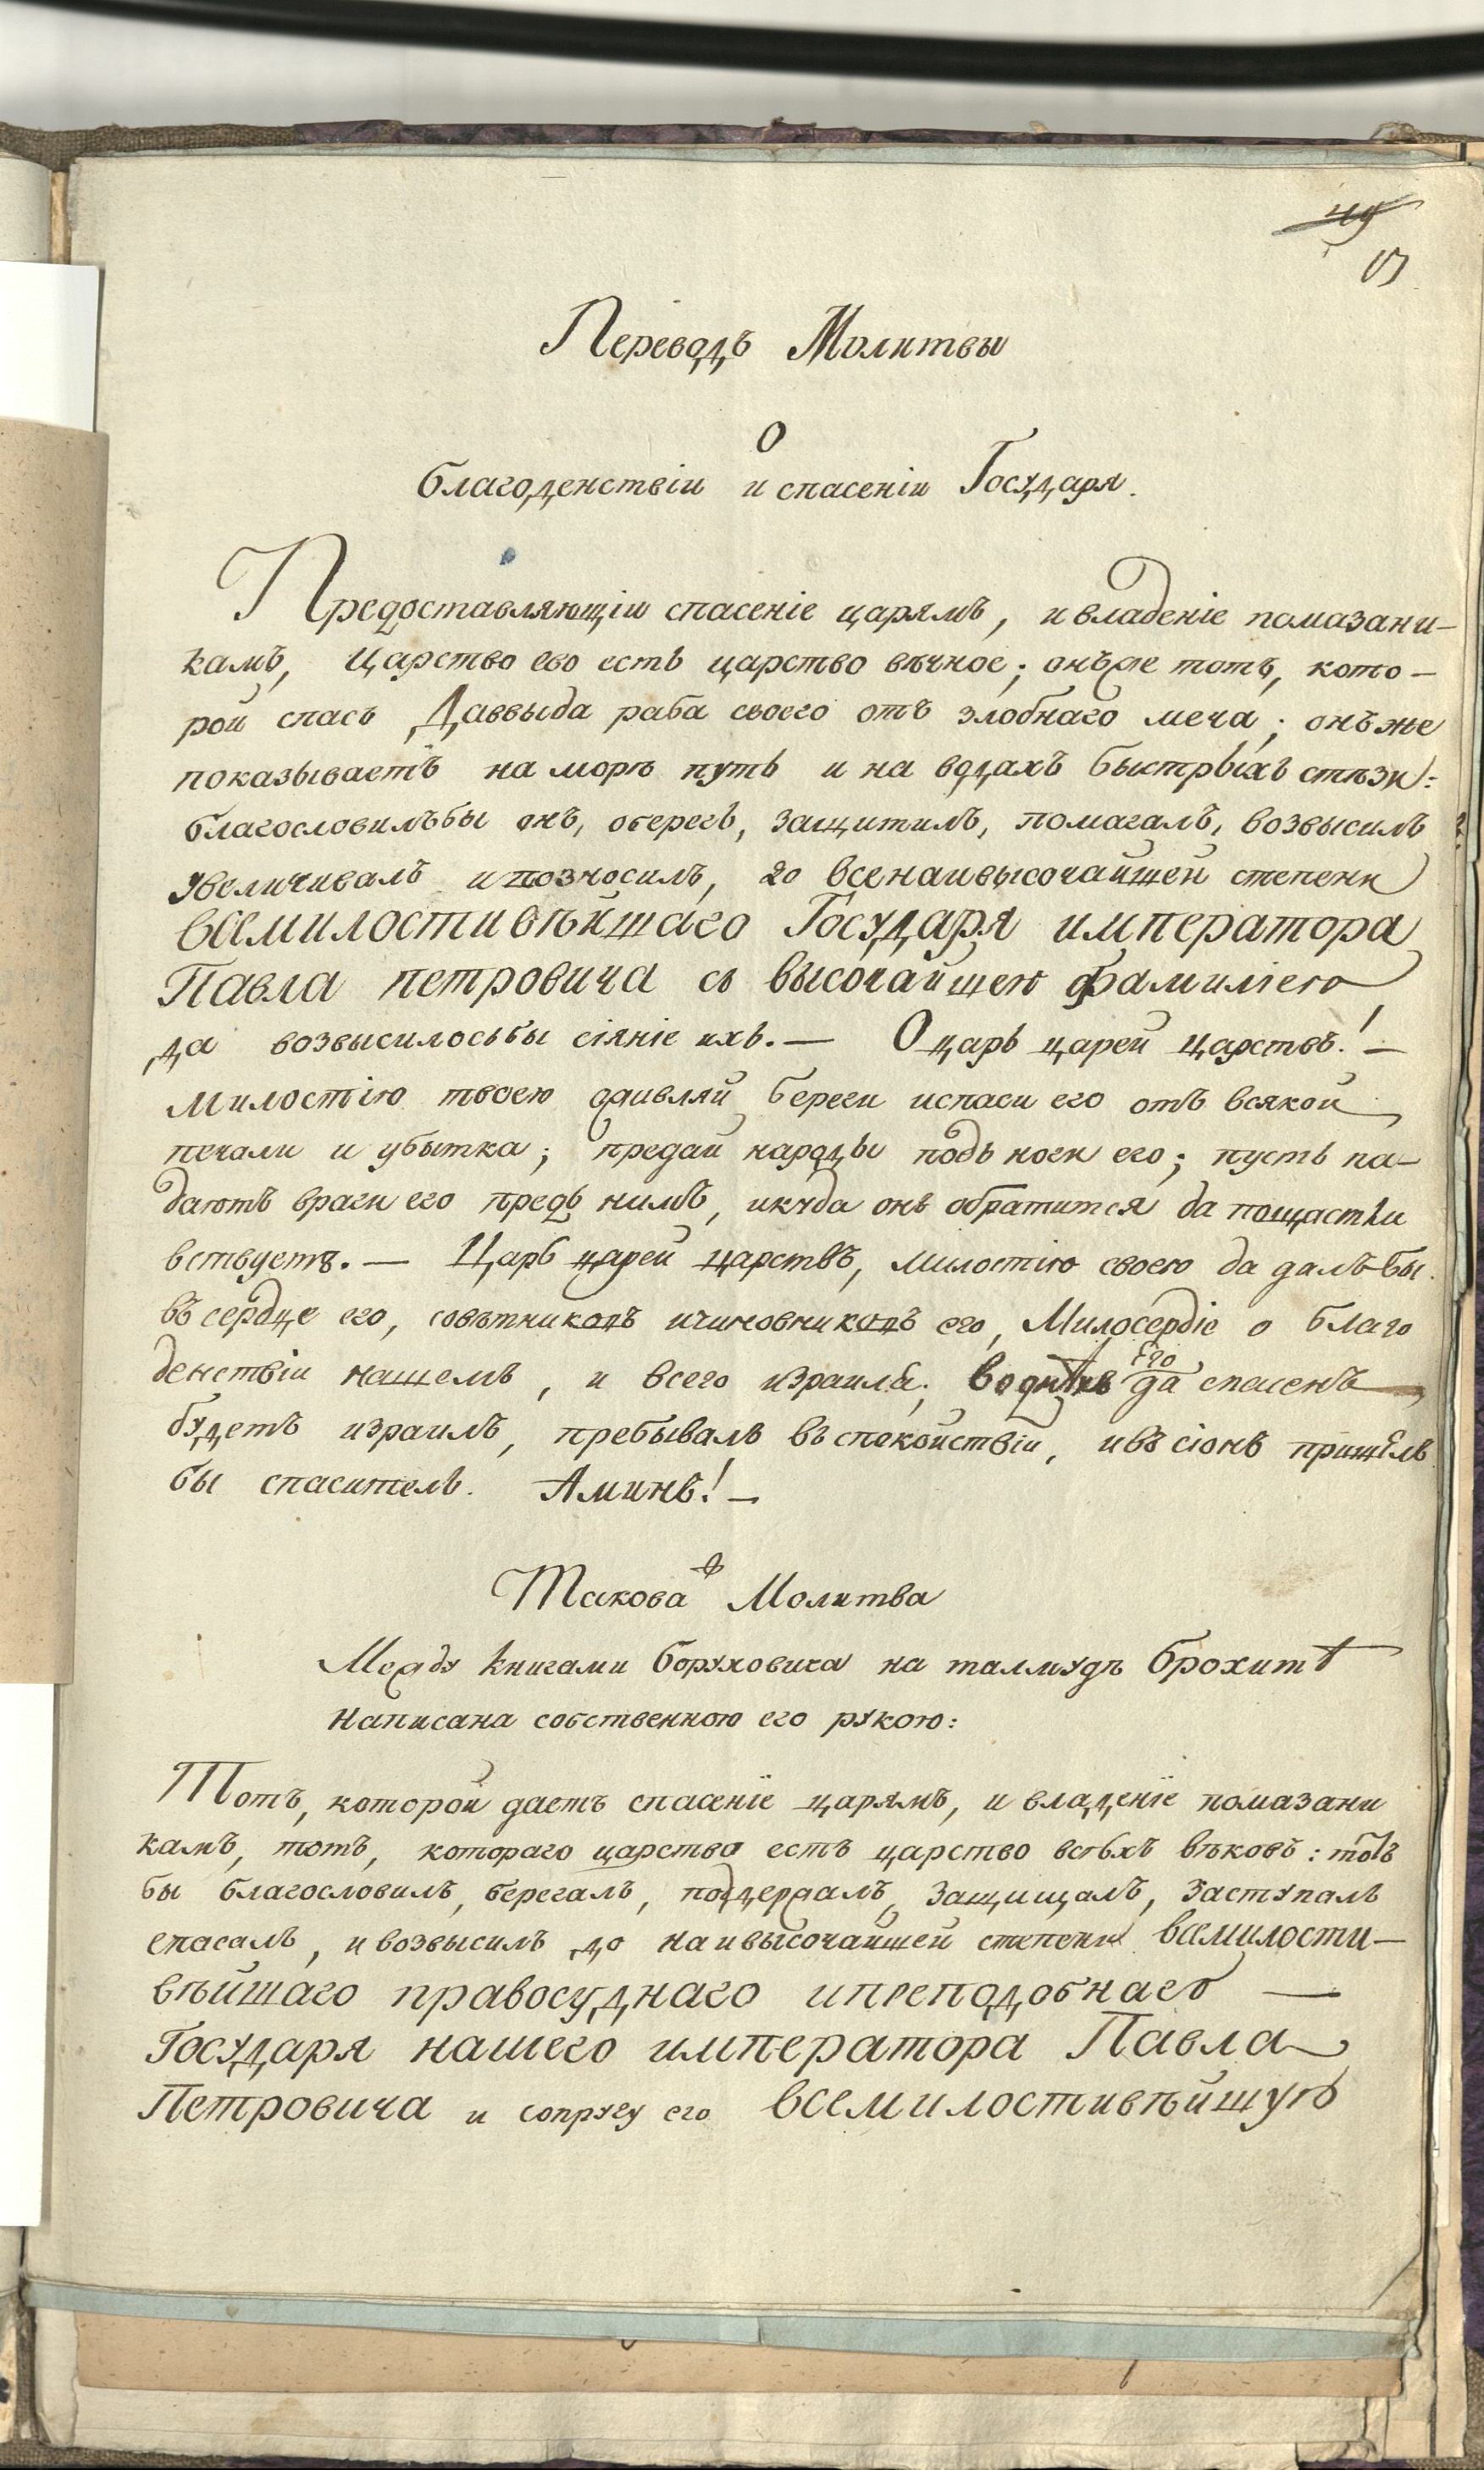 49
Переводъ Молитвы
О
благоденствіи и спасеніи Государя.
Предоставляющій спасеніе царямъ, и владеніе помазани-
камъ, Царство ево есть царство вѣчное; онъже тотъ, кото-
рой спасъ Даввыда раба своего отъ злобнаго меча; онъ же
показываетъ на морѣ путь и на водахъ быстрыхъ стѣзи:
благословилъбы онъ, оберегъ, защитилъ, помагалъ, возвысилъ
увеличивалъ и позносилъ, до всенаивысочайшей степени
всемилостивѣйшаго Государя императора
Павла петровича со высочайшею фамиліею
да возвысилосьбы сіяніе ихъ. — О царь царей царствъ! —
Милостію твоею оживляй береги испаси его отъ всякой
печали и убытка; предай народы подъ ноги его; пусть па-
даютъ враги его предъ нимъ, икуда онъ обратится да пощастли
вствуетъ. — Царь царей царствъ, милостію своею да далъ бы
въ сердце его, совѣтниковъ ичиновниковъ его, Милосердіе о благо
денствіи нашемъ, и всего израиля; во дни Его да спасенъ
будетъ израиль, пребывалъ въ спокойствіи, ивъ сіонъ пришелъ
бы спаситель. Аминь! —
Такова Молитва
Между книгами Боруховича на талмудъ Брохитъ
Написана собственною его рукою:
Тотъ, которой даетъ спасеніе царямъ, и владеніе помазани
камъ, тотъ, котораго царство есть царство всѣхъ вѣковъ: тотъ
бы благословилъ, берегалъ, поддержалъ, защищалъ, заступалъ
спасалъ, и возвысилъ до наивысочайшей степени всемилости-
вѣйшаго правосуднаго ипреподобнаго —
Государя нашего императора Павла
Петровича и супругу его всемилостивѣйшую